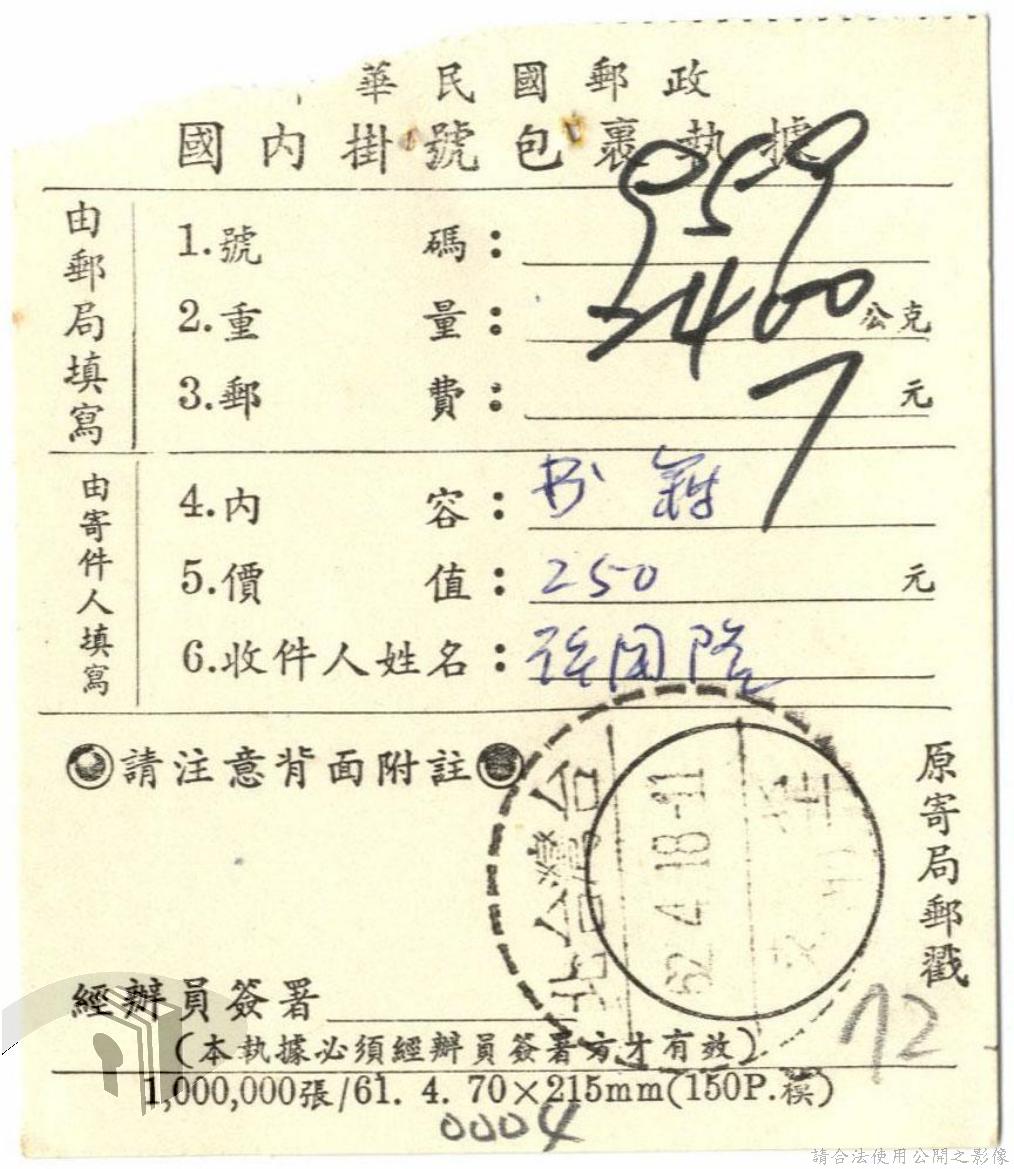 華民國郵政
國內掛號包裹執據
由郵局填寫
1.號碼：959
2.重量：2460公克
3.郵費：7元
由寄件人填寫
4.內容：书
5.價值：250元
6.收件人姓名：
請注意背面附註
台灣台北
62.4.18-11
原寄局郵戳
經辦員簽署
72
(本執據必須經辦員簽署方才有效)
1,000,000張/61. 4. 70×215mm(150P.模)
0004
請合法使用公開之影像